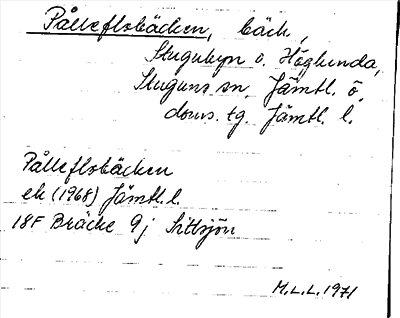 Pålleflobäcken, bäck,
Stugubyn o. Höglunda,
Stuguns sn, Jämtl. ö.
doms. tg. Jämtl. l.
Pålleflobäcken
ek (1968) Jämtl. l.
18F Bräcke 9j Sittsjön
M.L.L. 1971